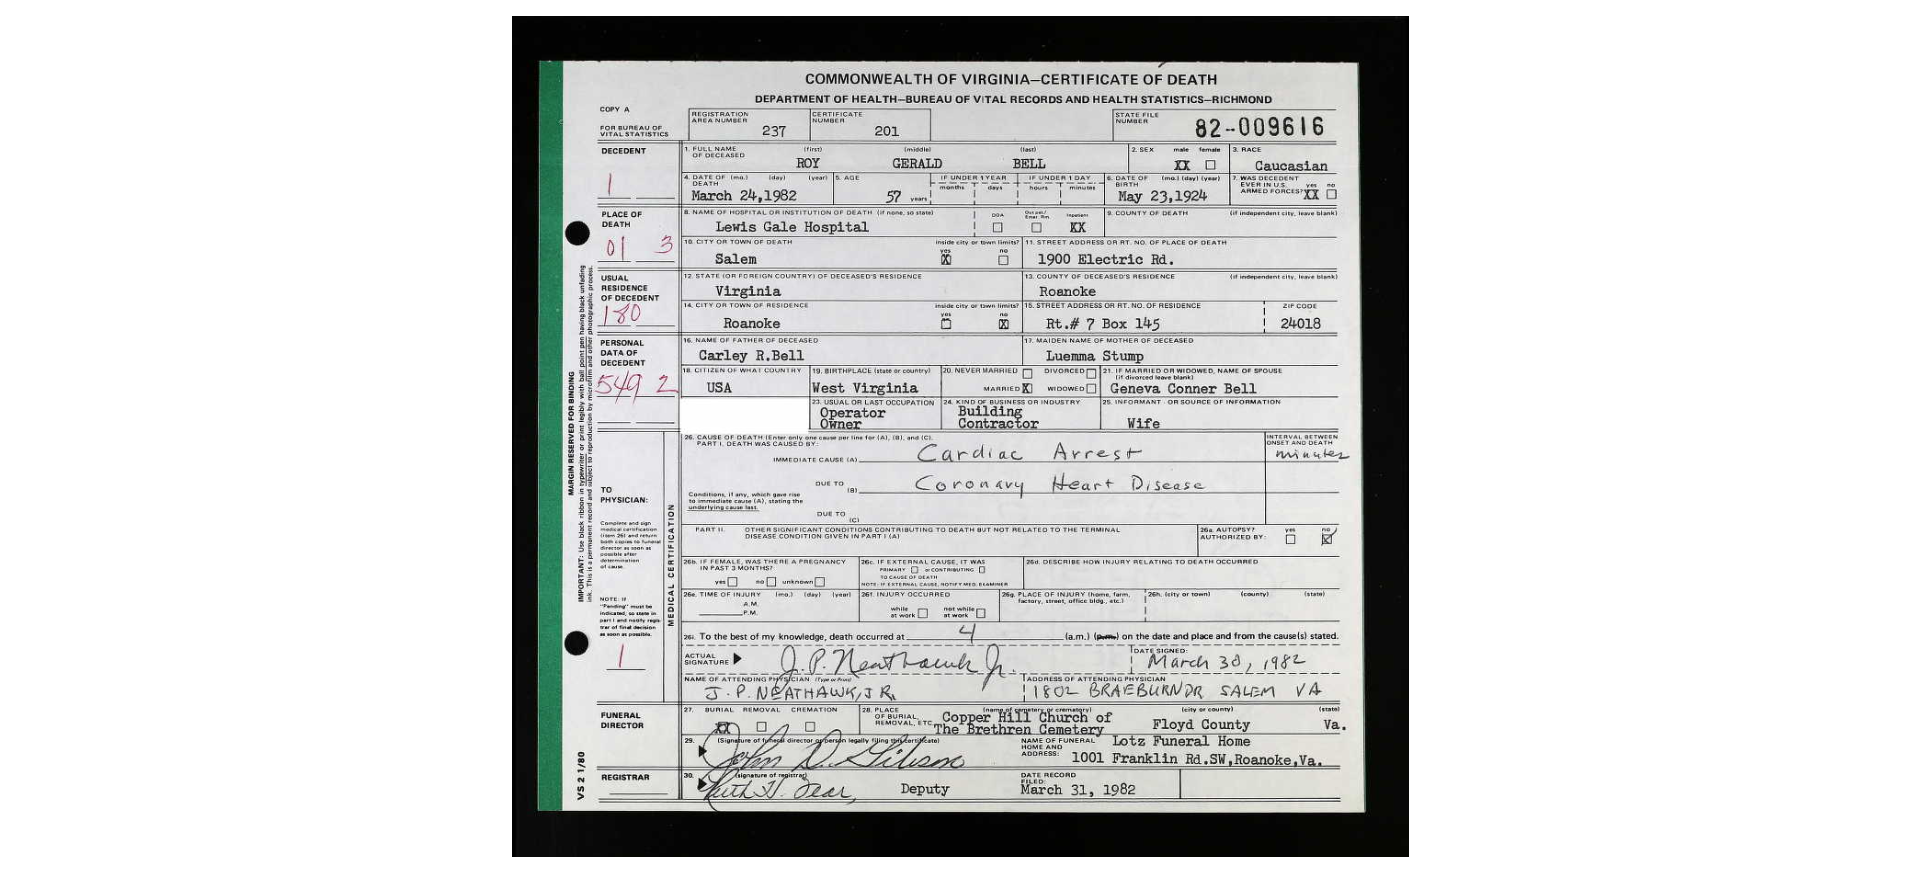 COMMONWEALTH OF VIRGINIA—CERTIFICATE OF DEATH
DEPARTMENT OF HEALTH—BUREAU OF VITAL RECORDS AND HEALTH STATISTICS—RICHMOND
COPY A
FOR BUREAU OF VITAL STATISTICS
REGISTRATION AREA NUMBER 237
CERTIFICATE NUMBER 201
STATE FILE NUMBER 82-009616
DECEDENT
1
1. FULL NAME OF DECEASED (first) (middle) (last)
ROY GERALD BELL
2. SEX male female
XX
3. RACE
Caucasian
4. DATE OF DEATH (mo.) (day) (year)
March 24,1982
5. AGE
57 years
IF UNDER 1 YEAR
months days
IF UNDER 1 DAY
hours minutes
6. DATE OF BIRTH (mo.) (day) (year)
May 23,1924
7. WAS DECEDENT EVER IN U.S. ARMED FORCES? yes no
XX
PLACE OF DEATH
01 3
8. NAME OF HOSPITAL OR INSTITUTION OF DEATH (if none, so state)
Lewis Gale Hospital
DOA Out pat./ Emer. Rm. Inpatient
XX
9. COUNTY OF DEATH (if independent city, leave blank)
10. CITY OR TOWN OF DEATH inside city or town limits?
Salem
yes no
X
11. STREET ADDRESS OR RT. NO. OF PLACE OF DEATH
1900 Electric Rd.
USUAL RESIDENCE OF DECEDENT
180
12. STATE (OR FOREIGN COUNTRY) OF DECEASED'S RESIDENCE
Virginia
13. COUNTY OF DECEASED'S RESIDENCE (if independent city, leave blank)
Roanoke
14. CITY OR TOWN OF RESIDENCE inside city or town limits?
Roanoke
yes no
X
15. STREET ADDRESS OR RT. NO. OF RESIDENCE
Rt.# 7 Box 145
ZIP CODE
24018
PERSONAL DATA OF DECEDENT
549 2
16. NAME OF FATHER OF DECEASED
Carley R.Bell
17. MAIDEN NAME OF MOTHER OF DECEASED
Luemma Stump
18. CITIZEN OF WHAT COUNTRY
USA
19. BIRTHPLACE (state or country)
West Virginia
20. NEVER MARRIED DIVORCED
MARRIED X WIDOWED
21. IF MARRIED OR WIDOWED, NAME OF SPOUSE
(if divorced leave blank)
Geneva Conner Bell
23. USUAL OR LAST OCCUPATION
Operator
Owner
24. KIND OF BUSINESS OR INDUSTRY
Building
Contractor
25. INFORMANT - OR SOURCE OF INFORMATION
Wife
MARGIN RESERVED FOR BINDING
IMPORTANT: Use black ribbon in typewriter or print legibly with ball point pen having black unfading
ink. This is a permanent record and subject to reproduction by microfilm and other photographic process.
TO PHYSICIAN:
Complete and sign medical certification (item 26) and return both copies to funeral director as soon as possible after determination of cause.
NOTE: If "Pending" must be indicated, so state in part I and notify registrar of final decision as soon as possible.
1
MEDICAL CERTIFICATION
26. CAUSE OF DEATH (Enter only one cause per line for (A), (B), and (C).
PART I. DEATH WAS CAUSED BY:
IMMEDIATE CAUSE (A) Cardiac Arrest
INTERVAL BETWEEN ONSET AND DEATH
minutes
DUE TO (B) Coronary Heart Disease
Conditions, if any, which gave rise to immediate cause (A), stating the underlying cause last.
DUE TO (C)
PART II. OTHER SIGNIFICANT CONDITIONS CONTRIBUTING TO DEATH BUT NOT RELATED TO THE TERMINAL
DISEASE CONDITION GIVEN IN PART I (A)
26a. AUTOPSY? AUTHORIZED BY: yes no
26b. IF FEMALE, WAS THERE A PREGNANCY IN PAST 3 MONTHS?
yes no unknown
26c. IF EXTERNAL CAUSE, IT WAS
PRIMARY or CONTRIBUTING
TO CAUSE OF DEATH
NOTE: IF EXTERNAL CAUSE, NOTIFY MED. EXAMINER
26d. DESCRIBE HOW INJURY RELATING TO DEATH OCCURRED
26e. TIME OF INJURY (mo.) (day) (year)
A.M.
P.M.
26f. INJURY OCCURRED
while at work not while at work
26g. PLACE OF INJURY (home, farm, factory, street, office bldg., etc.)
26h. (city or town) (county) (state)
26i. To the best of my knowledge, death occurred at 4 (a.m.) (p.m.) on the date and place and from the cause(s) stated.
ACTUAL SIGNATURE J. P. Neathawk Jr.
DATE SIGNED:
March 30, 1982
NAME OF ATTENDING PHYSICIAN (Type or Print)
J. P. NEATHAWK, JR.
ADDRESS OF ATTENDING PHYSICIAN
1802 BRAEBURN DR SALEM VA
FUNERAL DIRECTOR
27. BURIAL REMOVAL CREMATION
XX
28. PLACE OF BURIAL, REMOVAL, ETC. (name of cemetery or crematory) (city or county) (state)
Copper Hill Church of
The Brethren Cemetery Floyd County Va.
29. (Signature of funeral director or person legally filing this certificate)
John D. Gibson
NAME OF FUNERAL HOME AND ADDRESS:
Lotz Funeral Home
1001 Franklin Rd.SW,Roanoke,Va.
REGISTRAR
30. (signature of registrar)
Deputy
DATE RECORD FILED:
March 31, 1982
VS 2 1/80